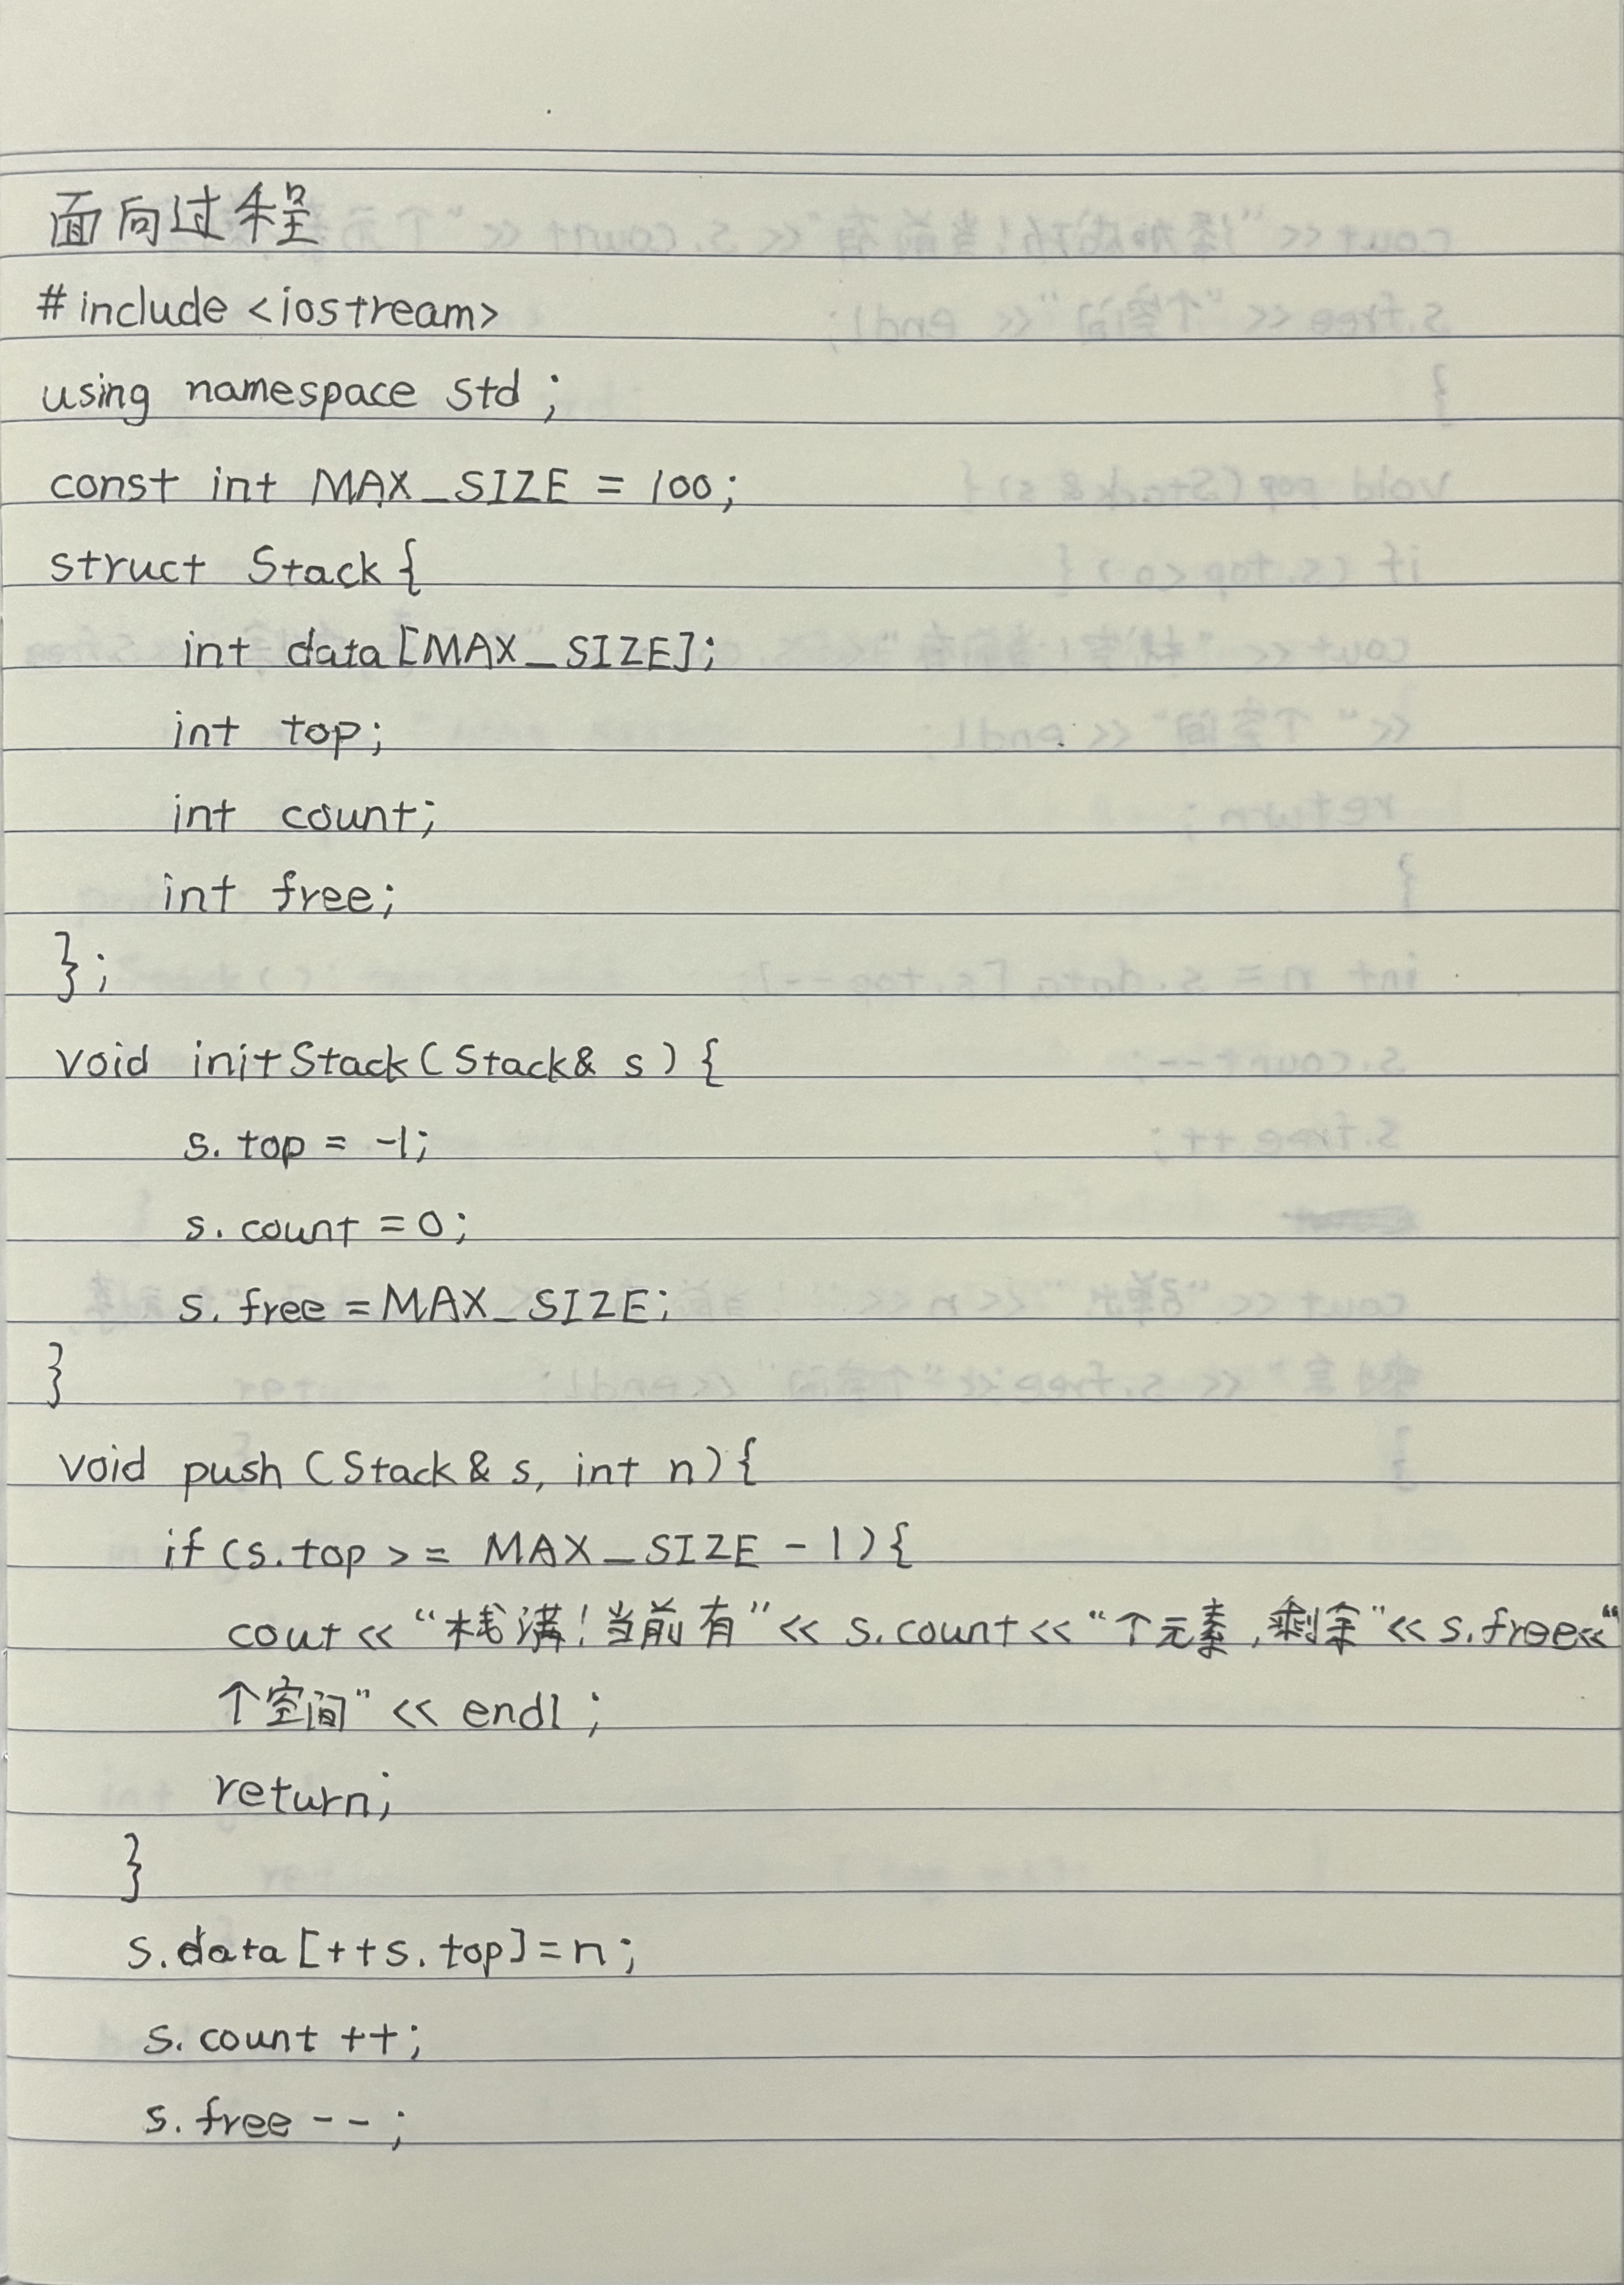 面向过程
#include <iostream>
using namespace std;
const int MAX_SIZE = 100;
struct Stack{
int data[MAX_SIZE];
int top;
int count;
int free;
};
void initStack(Stack& s){
s.top = -1;
s.count = 0;
s.free = MAX_SIZE;
}
void push(Stack& s, int n){
if(s.top >= MAX_SIZE - 1){
cout << “栈满!当前有” << s.count << “个元素,剩余” << s.free << “
个空间” << endl;
return;
}
s.data[++s.top]=n;
s.count ++;
s.free --;